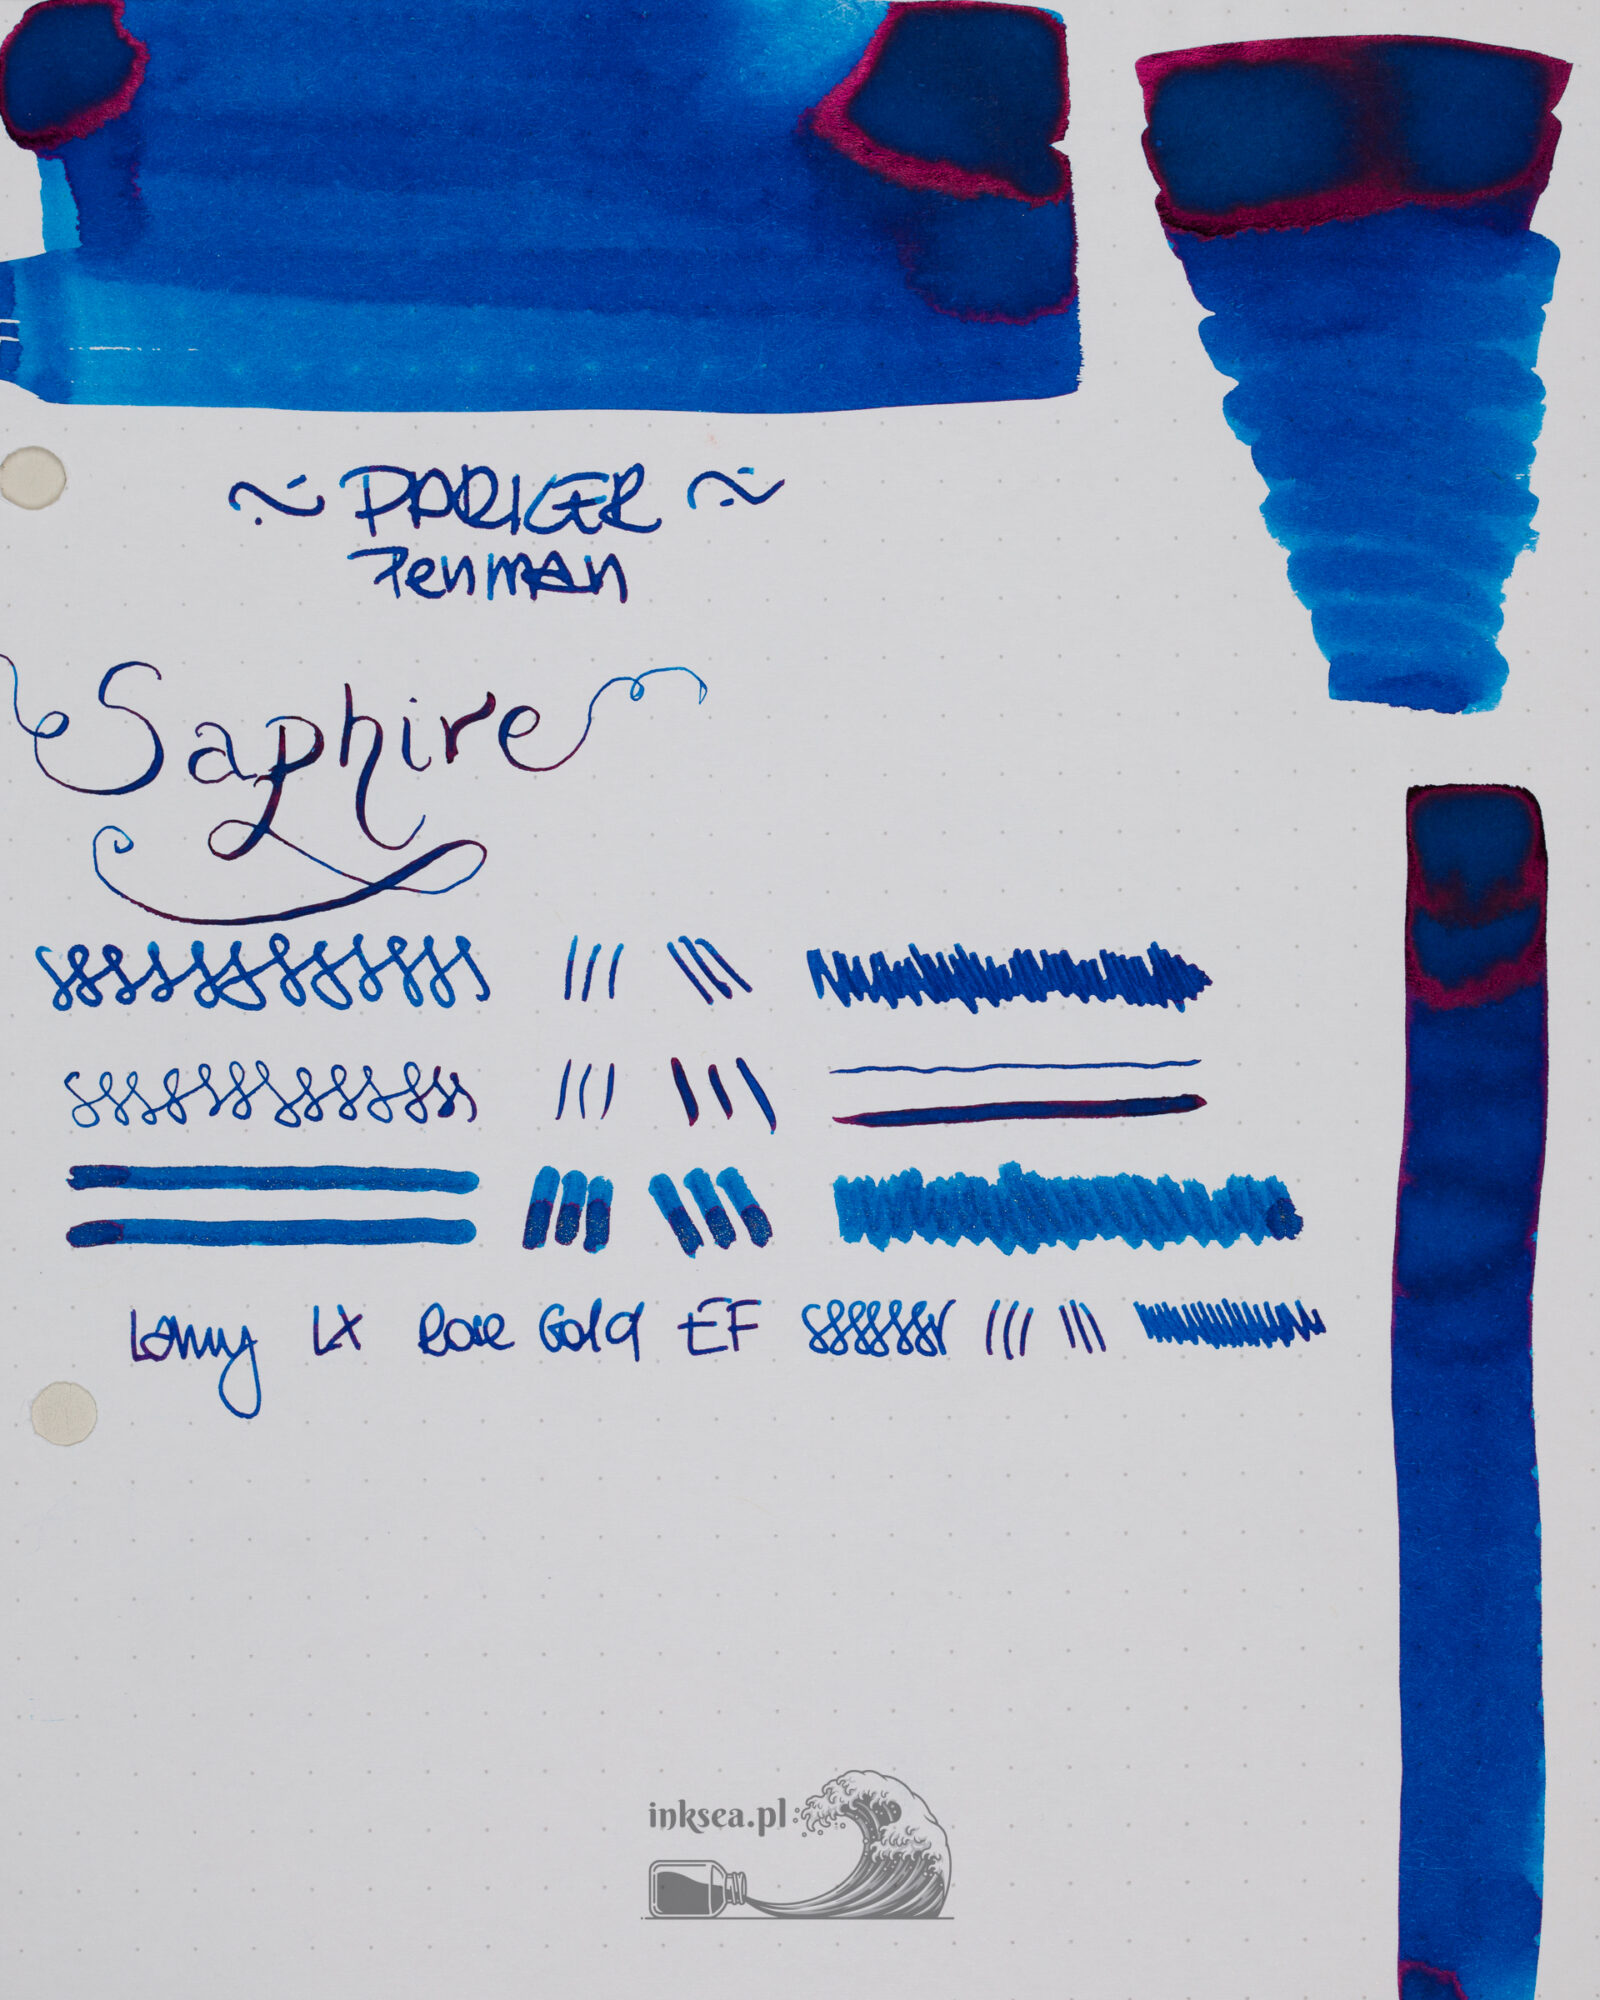 ~ PARKER ~
Penman
Saphire
Lamy LX Rose Gold EF
inksea.pl